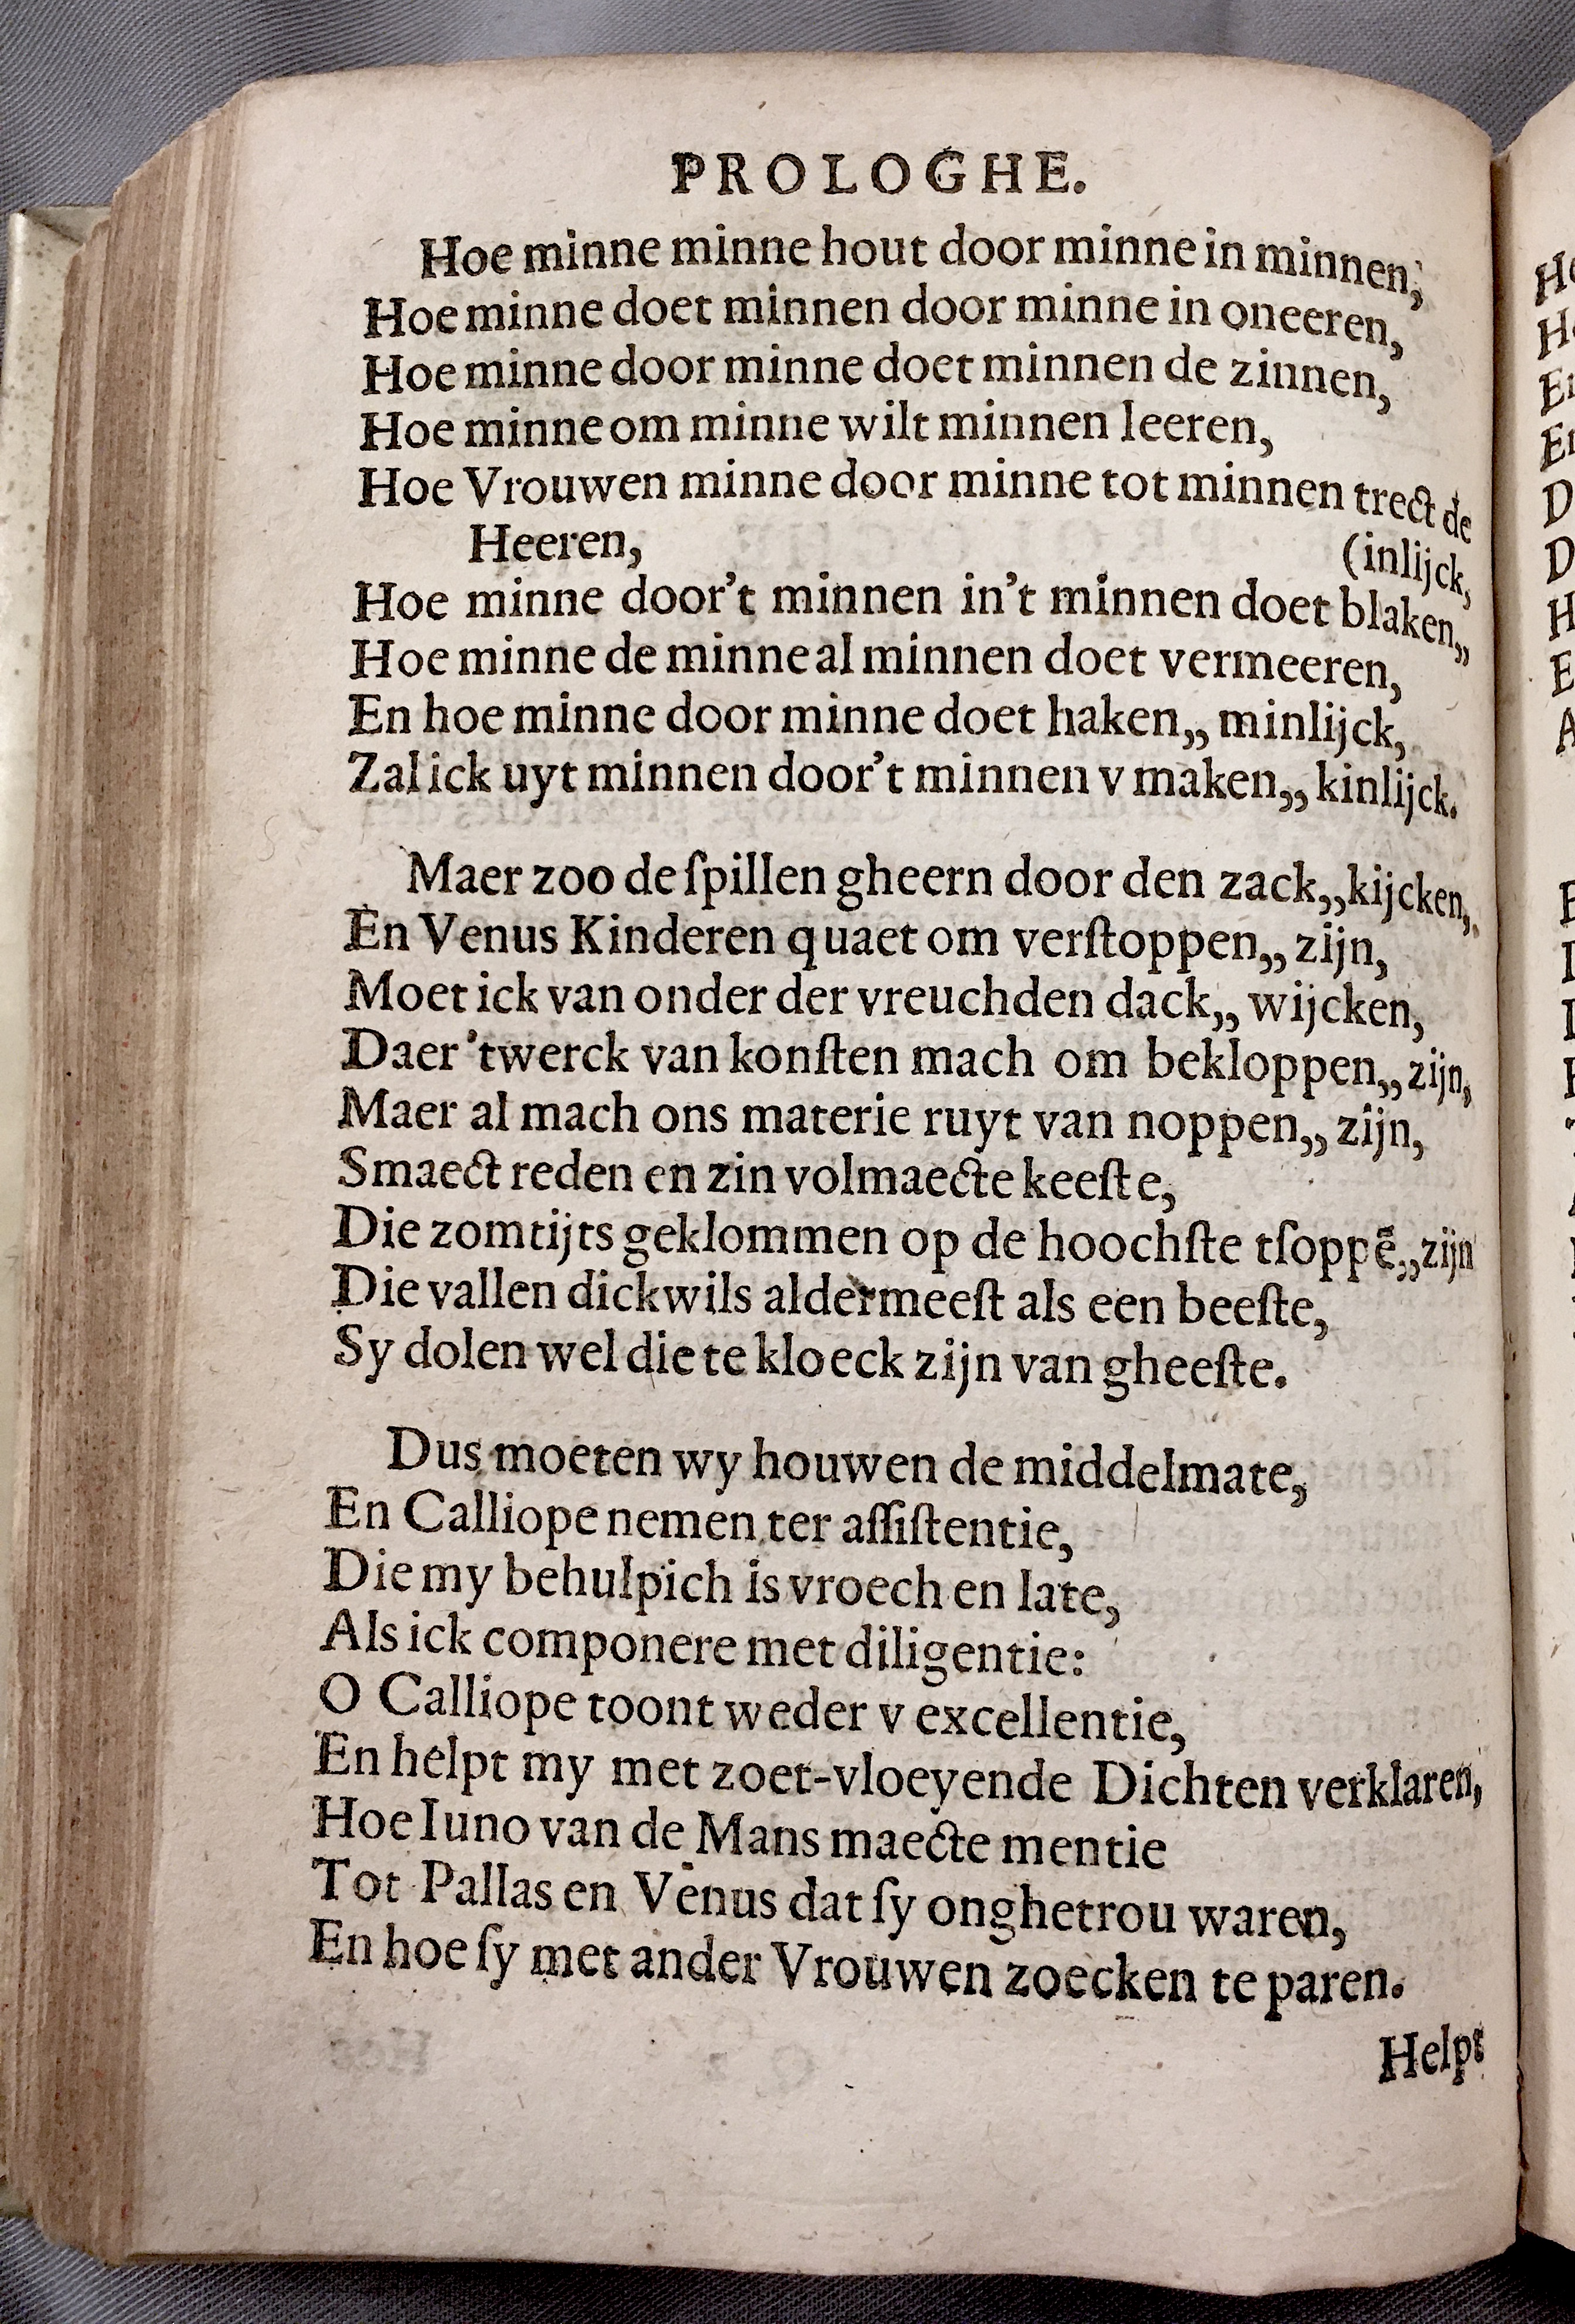 PROLOGHE.
Hoe minne minne hout door minne in minnen,
Hoe minne doet minnen door minne in oneeren,
Hoe minne door minne doet minnen de zinnen,
Hoe minne om minne wilt minnen leeren,
Hoe Vrouwen minne door minne tot minnen trect de
Heeren, (inlijck,
Hoe minne door't minnen in't minnen doet blaken,,
Hoe minne de minne al minnen doet vermeeren,
En hoe minne door minne doet haken,, minlijck,
Zal ick uyt minnen door't minnen v maken,, kinlijck.
Maer zoo de ſpillen gheern door den zack,, kijcken,
En Venus Kinderen quaet om verſtoppen,, zijn,
Moet ick van onder der vreuchden dack,, wijcken,
Daer 'twerck van konſten mach om bekloppen,, zijn,
Maer al mach ons materie ruyt van noppen,, zijn,
Smaect reden en zin volmaecte keeſte,
Die zomtijts geklommen op de hoochſte tſoppē,, zijn
Die vallen dickwils aldermeeſt als een beeſte,
Sy dolen wel die te kloeck zijn van gheeſte.
Dus moeten wy houwen de middelmate,
En Calliope nemen ter aſſiſtentie,
Die my behulpich is vroech en late,
Als ick componere met diligentie:
O Calliope toont weder v excellentie,
En helpt my met zoet-vloeyende Dichten verklaren,
Hoe Iuno van de Mans maecte mentie
Tot Pallas en Venus dat ſy onghetrou waren,
En hoe ſy met ander Vrouwen zoecken te paren.
Helpt